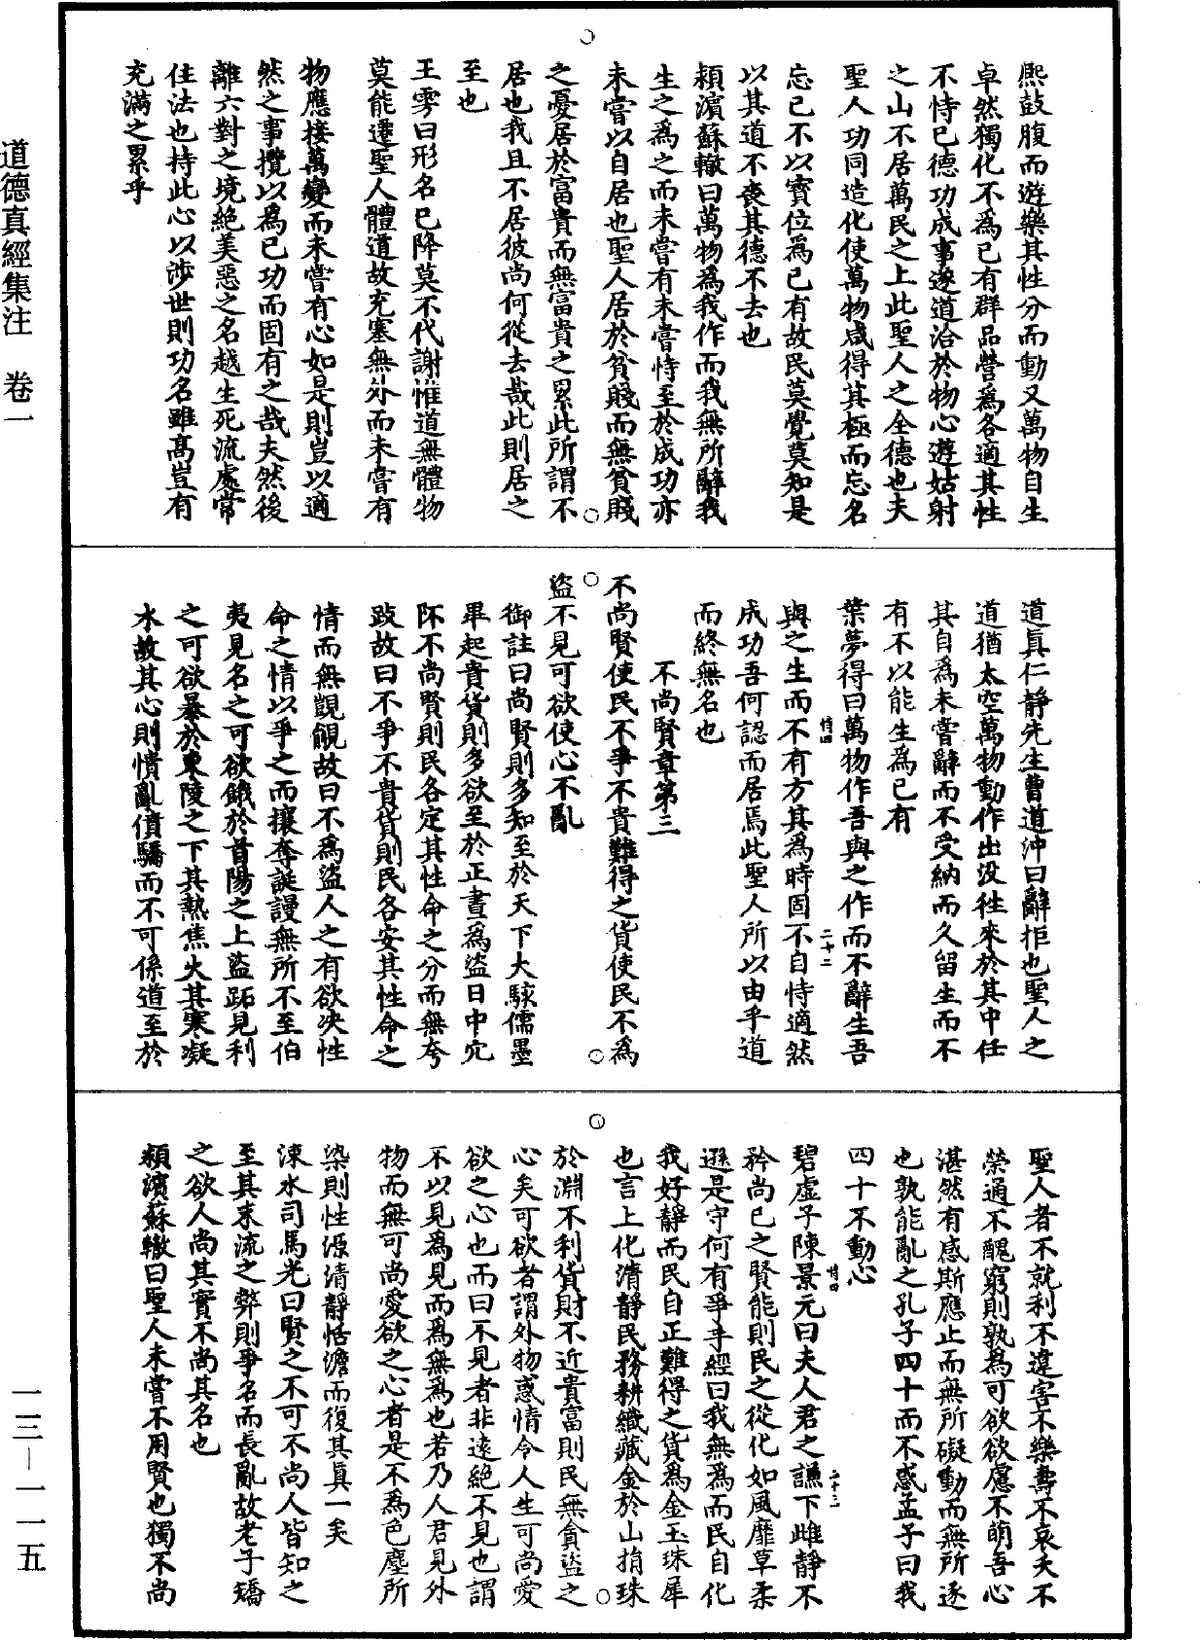 道德真經集注 卷一
熙鼓腹而遊樂其性分而動又萬物自生
卓然獨化不為己有群品營為各適其性
不恃己德功成事遂道洽於物心遊姑射
之山不居萬民之上此聖人之全德也夫
聖人功同造化使萬物咸得其極而忘名
忘己不以寶位為己有故民莫覺莫知是
以其道不喪其德不去也
頴濱蘇轍曰萬物為我作而我無所辭我
生之為之而未嘗有未嘗恃至於成功亦
未嘗以自居也聖人居於貧賤而無貧賤
之憂居於富貴而無富貴之累此所謂不
居也我且不居彼尚何從去哉此則居之
至也
王雱曰形名已降莫不代謝惟道無體物
莫能遷聖人體道故充塞無外而未嘗有
物應接萬變而未嘗有心如是則豈以適
然之事攬以為己功而固有之哉夫然後
離六對之境絶美惡之名越生死流處常
住法也持此心以涉世則功名雖高豈有
充滿之累乎
道眞仁靜先生曹道沖曰辭拒也聖人之
道猶太空萬物動作出没徃來於其中任
其自為未嘗辭而不受納而久留生而不
有不以能生為己有
葉夢得曰萬物作吾與之作而不辭生吾
與之生而不有方其為時固不自恃適然
成功吾何認而居焉此聖人所以由乎道
而終無名也
不尚賢章第三
不尚賢使民不爭不貴難得之貨使民不為
盜不見可欲使心不亂
御註曰尚賢則多知至於天下大駭儒墨
畢起貴貨則多欲至於正晝為盜日中穴
阫不尚賢則民各定其性命之分而無夸
跂故曰不爭不貴貨則民各安其性命之
情而無覬覦故曰不為盜人之有欲決性
命之情以爭之而攘奪誕謾無所不至伯
夷見名之可欲餓於首陽之上盜跖見利
之可欲暴於東陵之下其熱焦火其寒凝
水故其心則憒亂僨驕而不可係道至於
聖人者不就利不違害不樂壽不哀夭不
榮通不醜窮則孰為可欲欲慮不萌吾心
湛然有感斯應止而無所礙動而無所逐
也孰能亂之孔子四十而不惑孟子曰我
四十不動心
碧虛子陳景元曰夫人君之謙下雌靜不
矜尚己之賢能則民之從化如風靡草柔
遜是守何有爭乎經曰我無為而民自化
我好靜而民自正難得之貨為金玉珠犀
也言上化清靜民務耕織藏金於山捐珠
於淵不利貨財不近貴富則民無貪盜之
心矣可欲者謂外物惑情令人生可尚愛
欲之心也而曰不見者非遠絶不見也謂
不以見為見而為無為也若乃人君見外
物而無可尚愛欲之心者是不為色塵所
染則性源清靜恬澹而復其眞一矣
涑水司馬光曰賢之不可不尚人皆知之
至其末流之弊則爭名而長亂故老子矯
之欲人尚其實不尚其名也
頴濱蘇轍曰聖人未嘗不用賢也獨不尚
二十二
二十三
一三—一一五